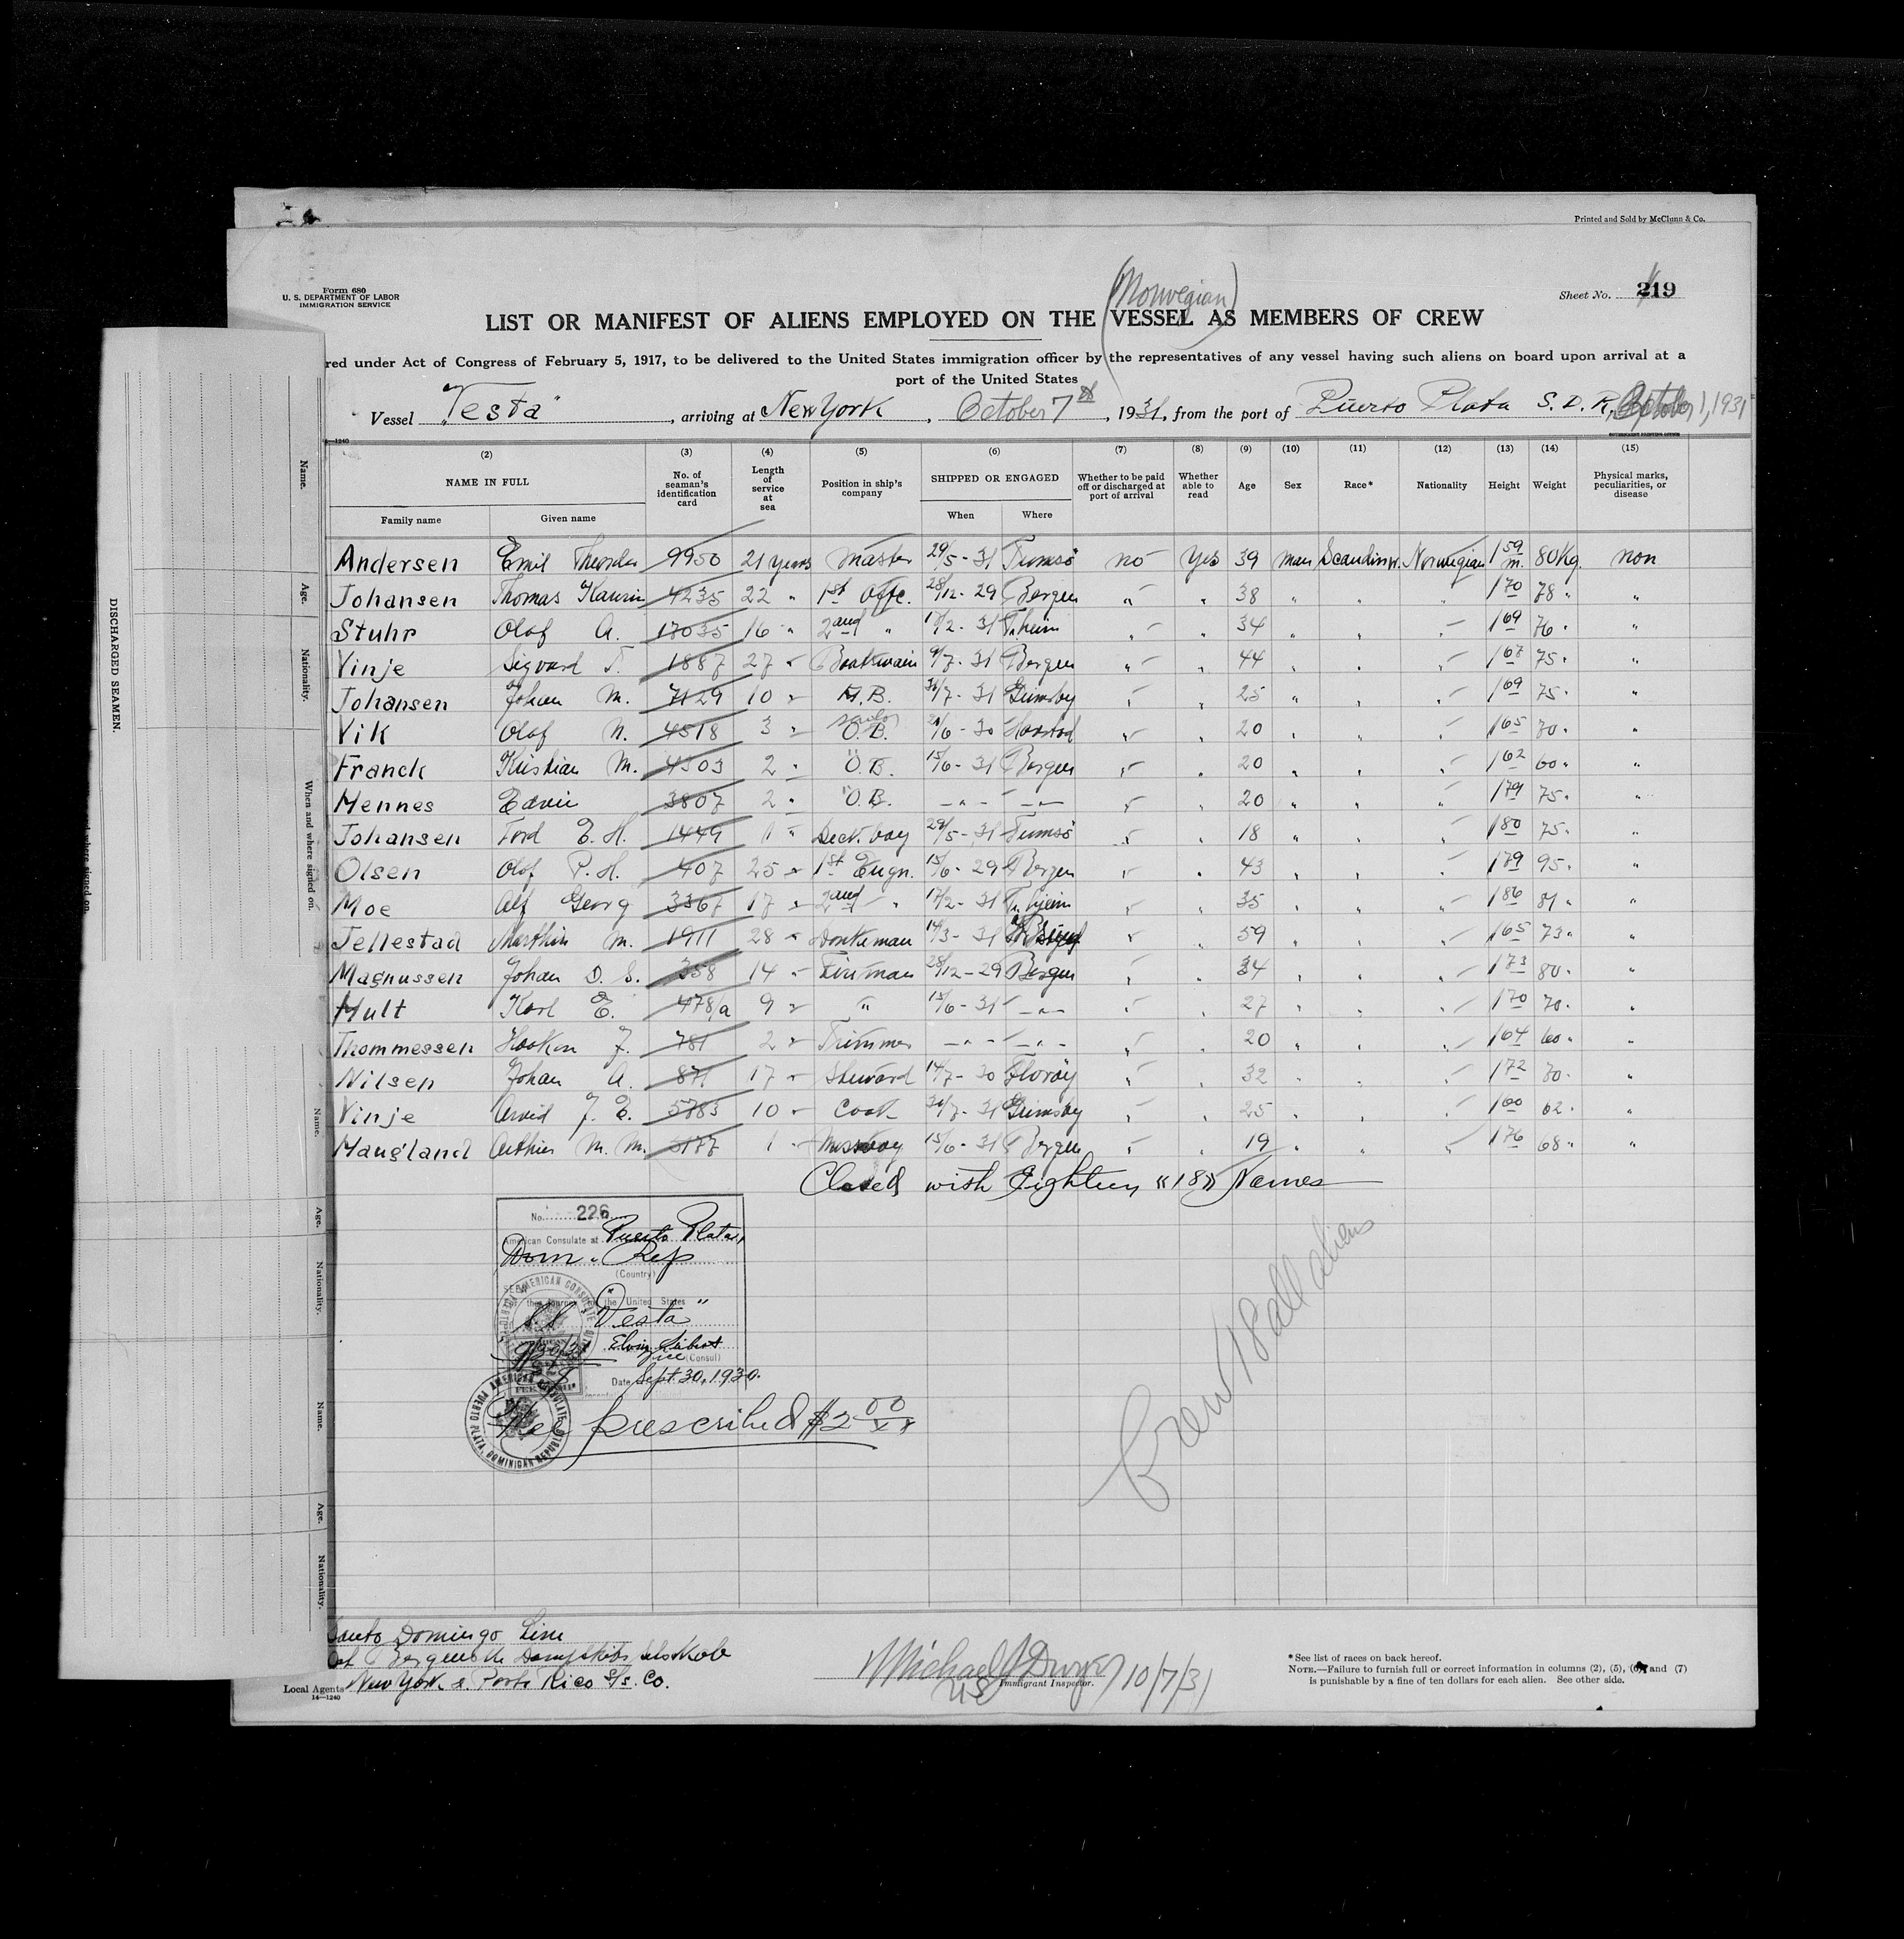 Printed and Sold by McClunn & Co.
Form 680
U. S. DEPARTMENT OF LABOR
IMMIGRATION SERVICE
(Norwegian)
Sheet No. 219
LIST OR MANIFEST OF ALIENS EMPLOYED ON THE VESSEL AS MEMBERS OF CREW
red under Act of Congress of February 5, 1917, to be delivered to the United States immigration officer by the representatives of any vessel having such aliens on board upon arrival at a
port of the United States
Vessel "Vesta", arriving at New York, October 7th, 1931, from the port of Puerto Plata S. D. R., October 1, 1931
(2) (3) (4) (5) (6) (7) (8) (9) (10) (11) (12) (13) (14) (15)
NAME IN FULL No. of seaman's identification card Length of service at sea Position in ship's company SHIPPED OR ENGAGED Whether to be paid off or discharged at port of arrival Whether able to read Age Sex Race* Nationality Height Weight Physical marks, peculiarities, or disease
Family name Given name When Where
Andersen Emil 9950 21 years master 29/5 - 31 Tromsö no yes 39 man Scandinav. Norwegian 1 59 m. 80 Kg. non
Johansen Thomas 4235 22 " 1st Offc. 28/12 - 29 Bergen " " 38 " " " 1 70 78 " "
Stuhr Olaf A. 17035 16 " 2and " 17/2 - 31 T.heim " " 34 " " " 1 69 76 " "
Vinje Sigvard T. 1887 27 " Boatswain 9/7 - 31 Bergen " " 44 " " " 1 67 75 " "
Johansen Johan M. 7129 10 " A.B. 31/7 - 31 Grimsby " " 25 " " " 1 69 75 " "
Vik Olaf N. 4518 3 " O.B. /6 - 30 Harstad " " 20 " " " 1 65 70 " "
Franck Kristian M. 4503 2 " O.B. 15/6 - 31 Bergen " " 20 " " " 1 62 60 " "
Hennes Edvin 3807 2 " O.B. - " - - " - " " 20 " " " 1 79 75 " "
Johansen Tord E. H. 1449 1 " Deck boy 29/5 - 31 Tromsö " " 18 " " " 1 80 75 " "
Olsen Olaf P. H. 407 25 " 1st Engn. 15/6 - 29 Bergen " " 43 " " " 1 79 95 " "
Moe Alf Georg 3367 17 " 2and " 17/2 - 31 T. hjeim " " 35 " " " 1 86 81 " "
Jellestad Marthin M. 1911 28 " Donkeman 14/3 - 31 " " 59 " " " 1 65 73 " "
Magnussen Johan D. S. 358 14 " Fireman 28/12 - 29 Bergen " " 34 " " " 1 73 80 " "
Hult Karl E. 478/a 9 " " 15/6 - 31 - " - " " 27 " " " 1 70 70 " "
Thommessen Haakon J. 781 2 " Trimmer - " - - " - " " 20 " " " 1 64 60 " "
Nilsen Johan A. 871 17 " Steward 14/7 - 30 Floröy " " 32 " " " 1 72 70 " "
Vinje Arvid J. E. 5783 10 " Cook 31/7 - 31 Grimsby " " 25 " " " 1 60 62 " "
Haugland Arthur M. M. 5177 1 " Messboy 15/6 - 31 Bergen " " 19 " " " 1 76 68 " "
Closed with Eighteen "18" Names
Crew 18 all aliens
No. 226
American Consulate at Puerto Plata,
Dom. Rep
(Country)
SEEN
For the journey to the United States
S.S. "Vesta"
9/30/31
Vice (Consul)
Date Sept. 30, 1930.
AMERICAN CONSULATE
PUERTO PLATA, DOMINICAN REPUBLIC
Fee prescribed $2 00/xx
DISCHARGED SEAMEN.
Name.
Age.
Nationality.
When and where signed on.
Name.
Age.
Nationality.
Name.
Age.
Nationality.
Santo Domingo Line
Det Bergenske Dampskibs Selskab
Local Agents New York & Porto Rico S/s. Co.
14—1240
Michael J Dwyer 10/7/31
U.S. Immigrant Inspector.
*See list of races on back hereof.
NOTE.—Failure to furnish full or correct information in columns (2), (5), (6), and (7)
is punishable by a fine of ten dollars for each alien. See other side.